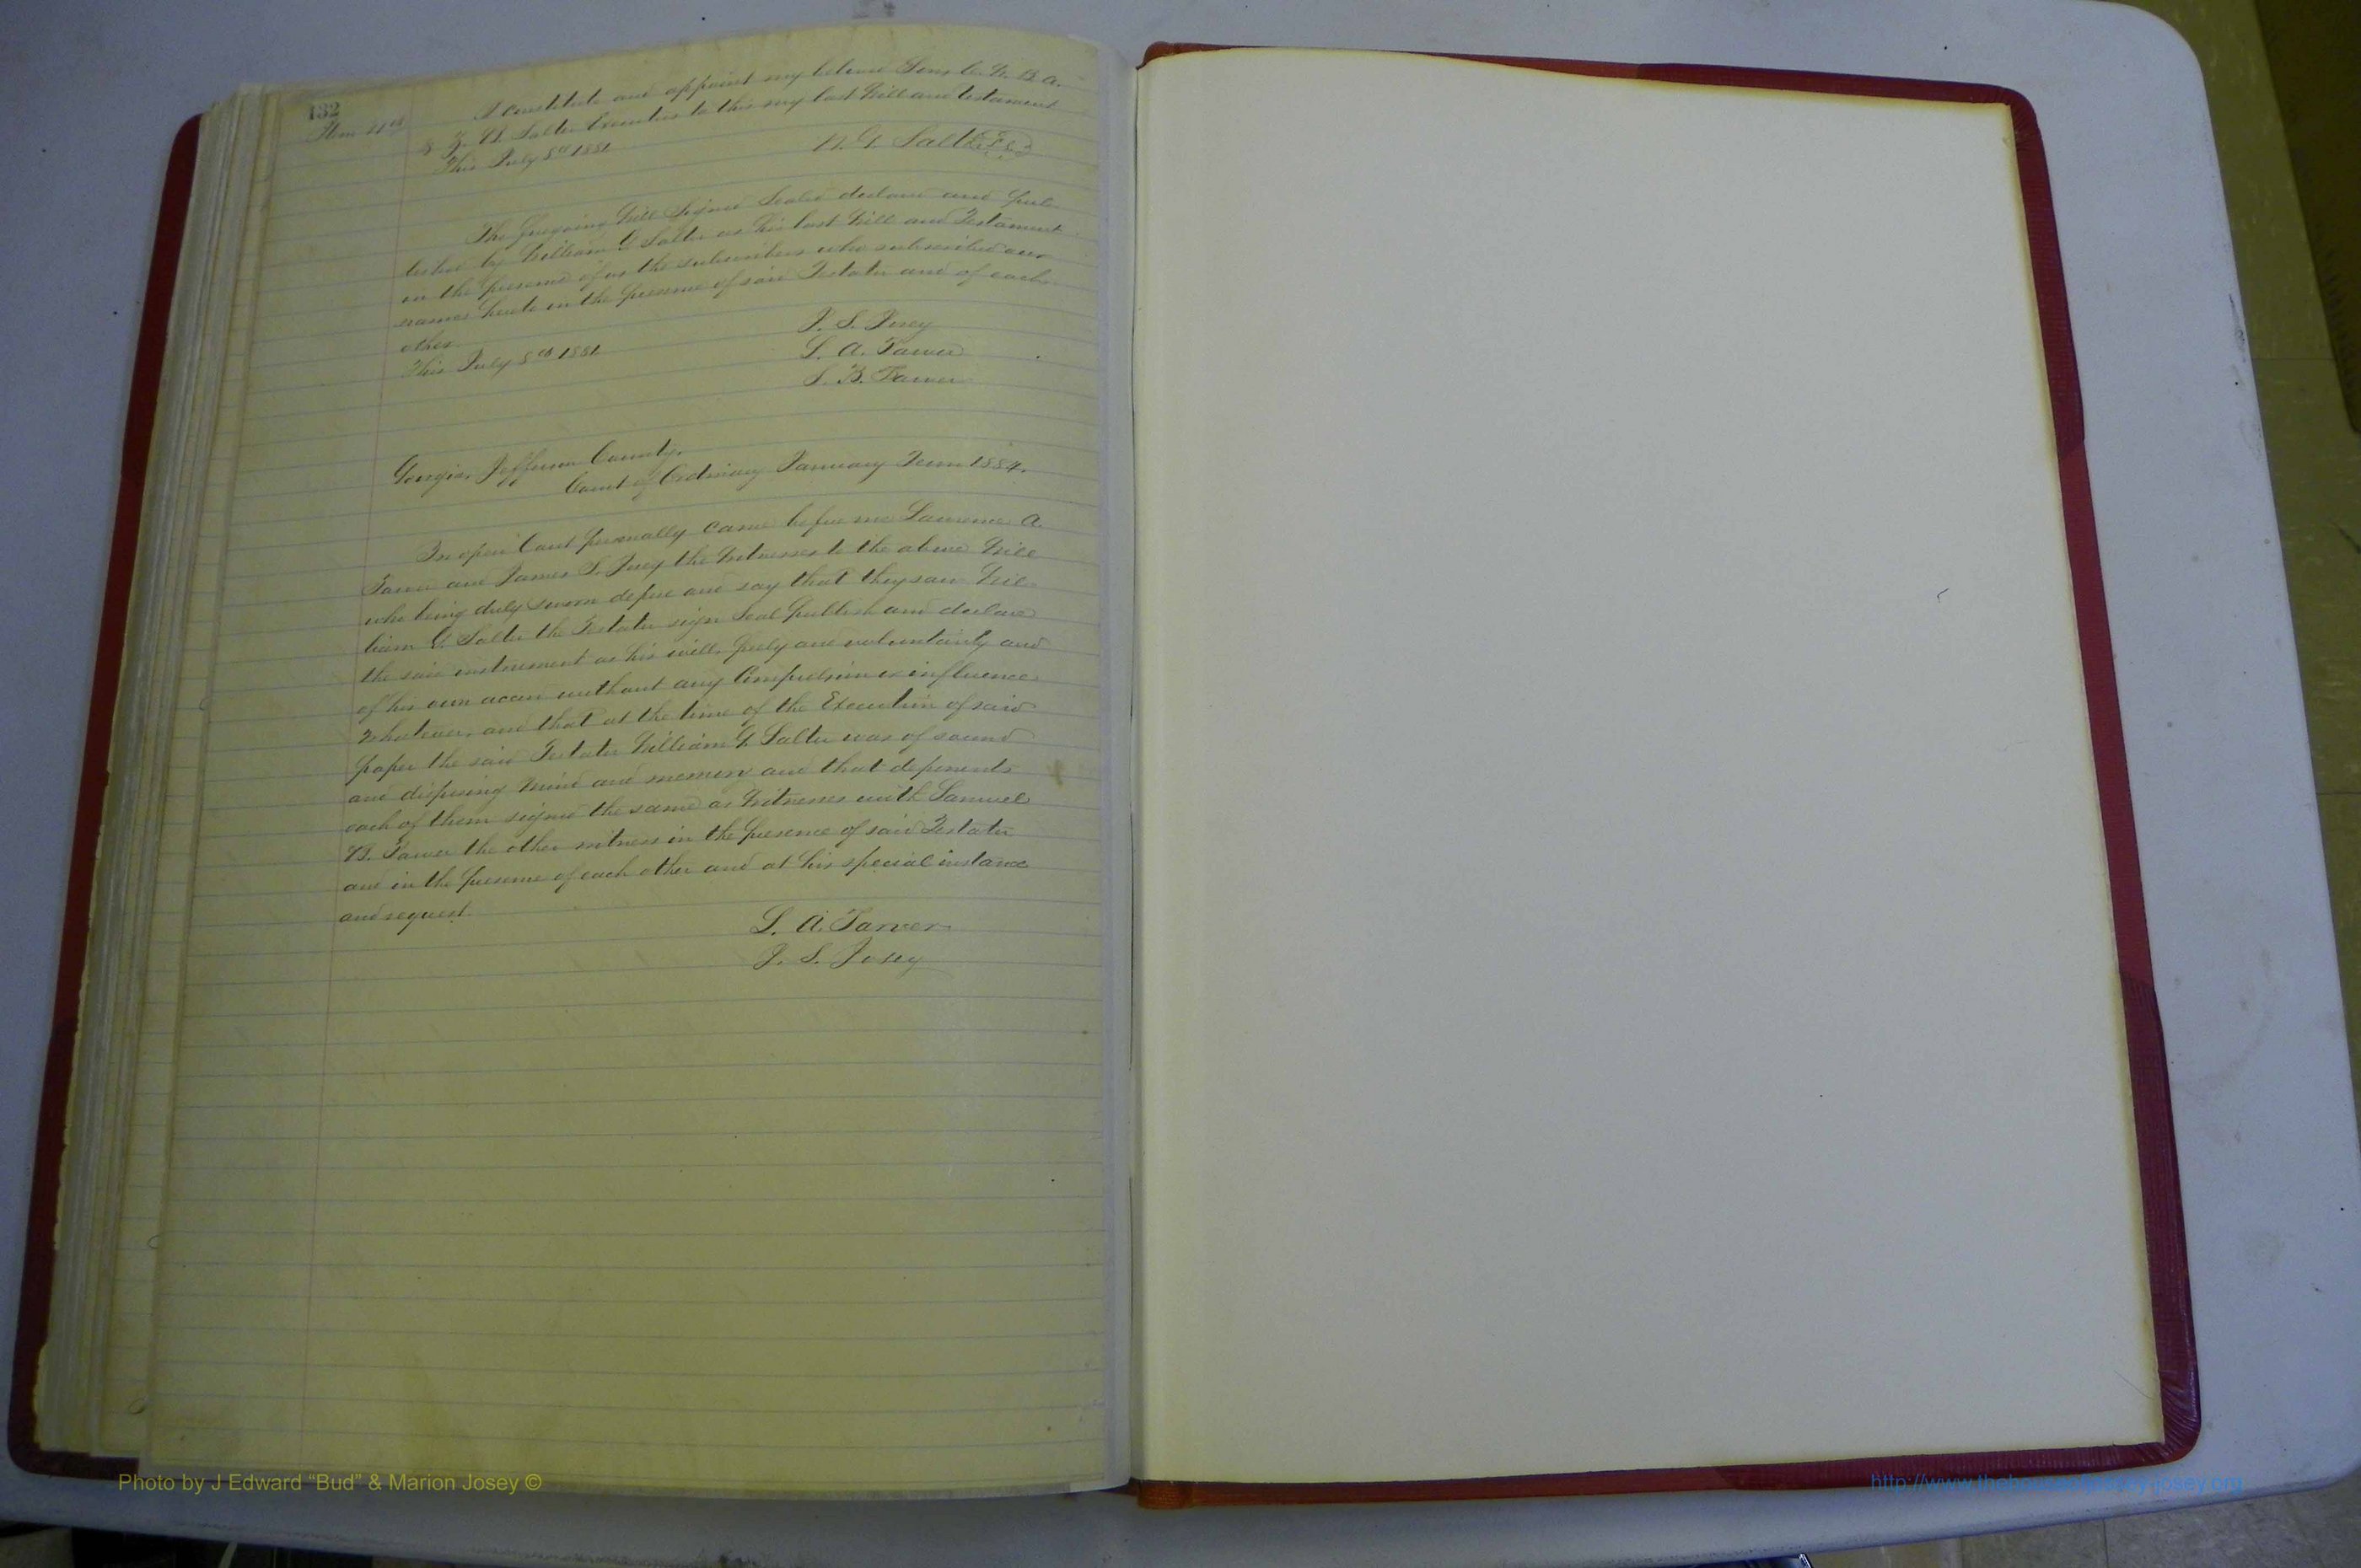 432
Item 11th I constitute and appoint my beloved Sons
& Z. B. Salter Executors to this my last Will and testament
This July 8th 1881
W. G. Salter
The foregoing Will Signed Sealed declared and Pub
lished by William G Salter as his last Will and Testament
in the presence of us the subscribers who subscribed our
names hereto in the presence of said Testator and of each
other
This July 8th 1881
J. S. Josey
L. A. Tarver
S. B. Tarver
Georgia, Jefferson County.
Court of Ordinary January Term 1884.
In open Court personally came before me Lawrence A.
Tarver and James S. Josey the Witnesses to the above Will
who being duly sworn depose and say that they saw Wil
liam G. Salter the Testator sign Seal Publish and declare
the said instrument as his will, freely and voluntarily and
of his own accord without any Compulsion or influence
whatever, and that at the time of the Execution of said
paper the said Testator William G. Salter was of sound
and disposing mind and memory and that deponents
each of them signed the same as Witnesses with Samuel
B. Tarver the other witness in the presence of said Testator
and in the presence of each other and at his special instance
and request.
L. A. Tarver
J. S. Josey
Photo by J Edward “Bud” & Marion Josey ©